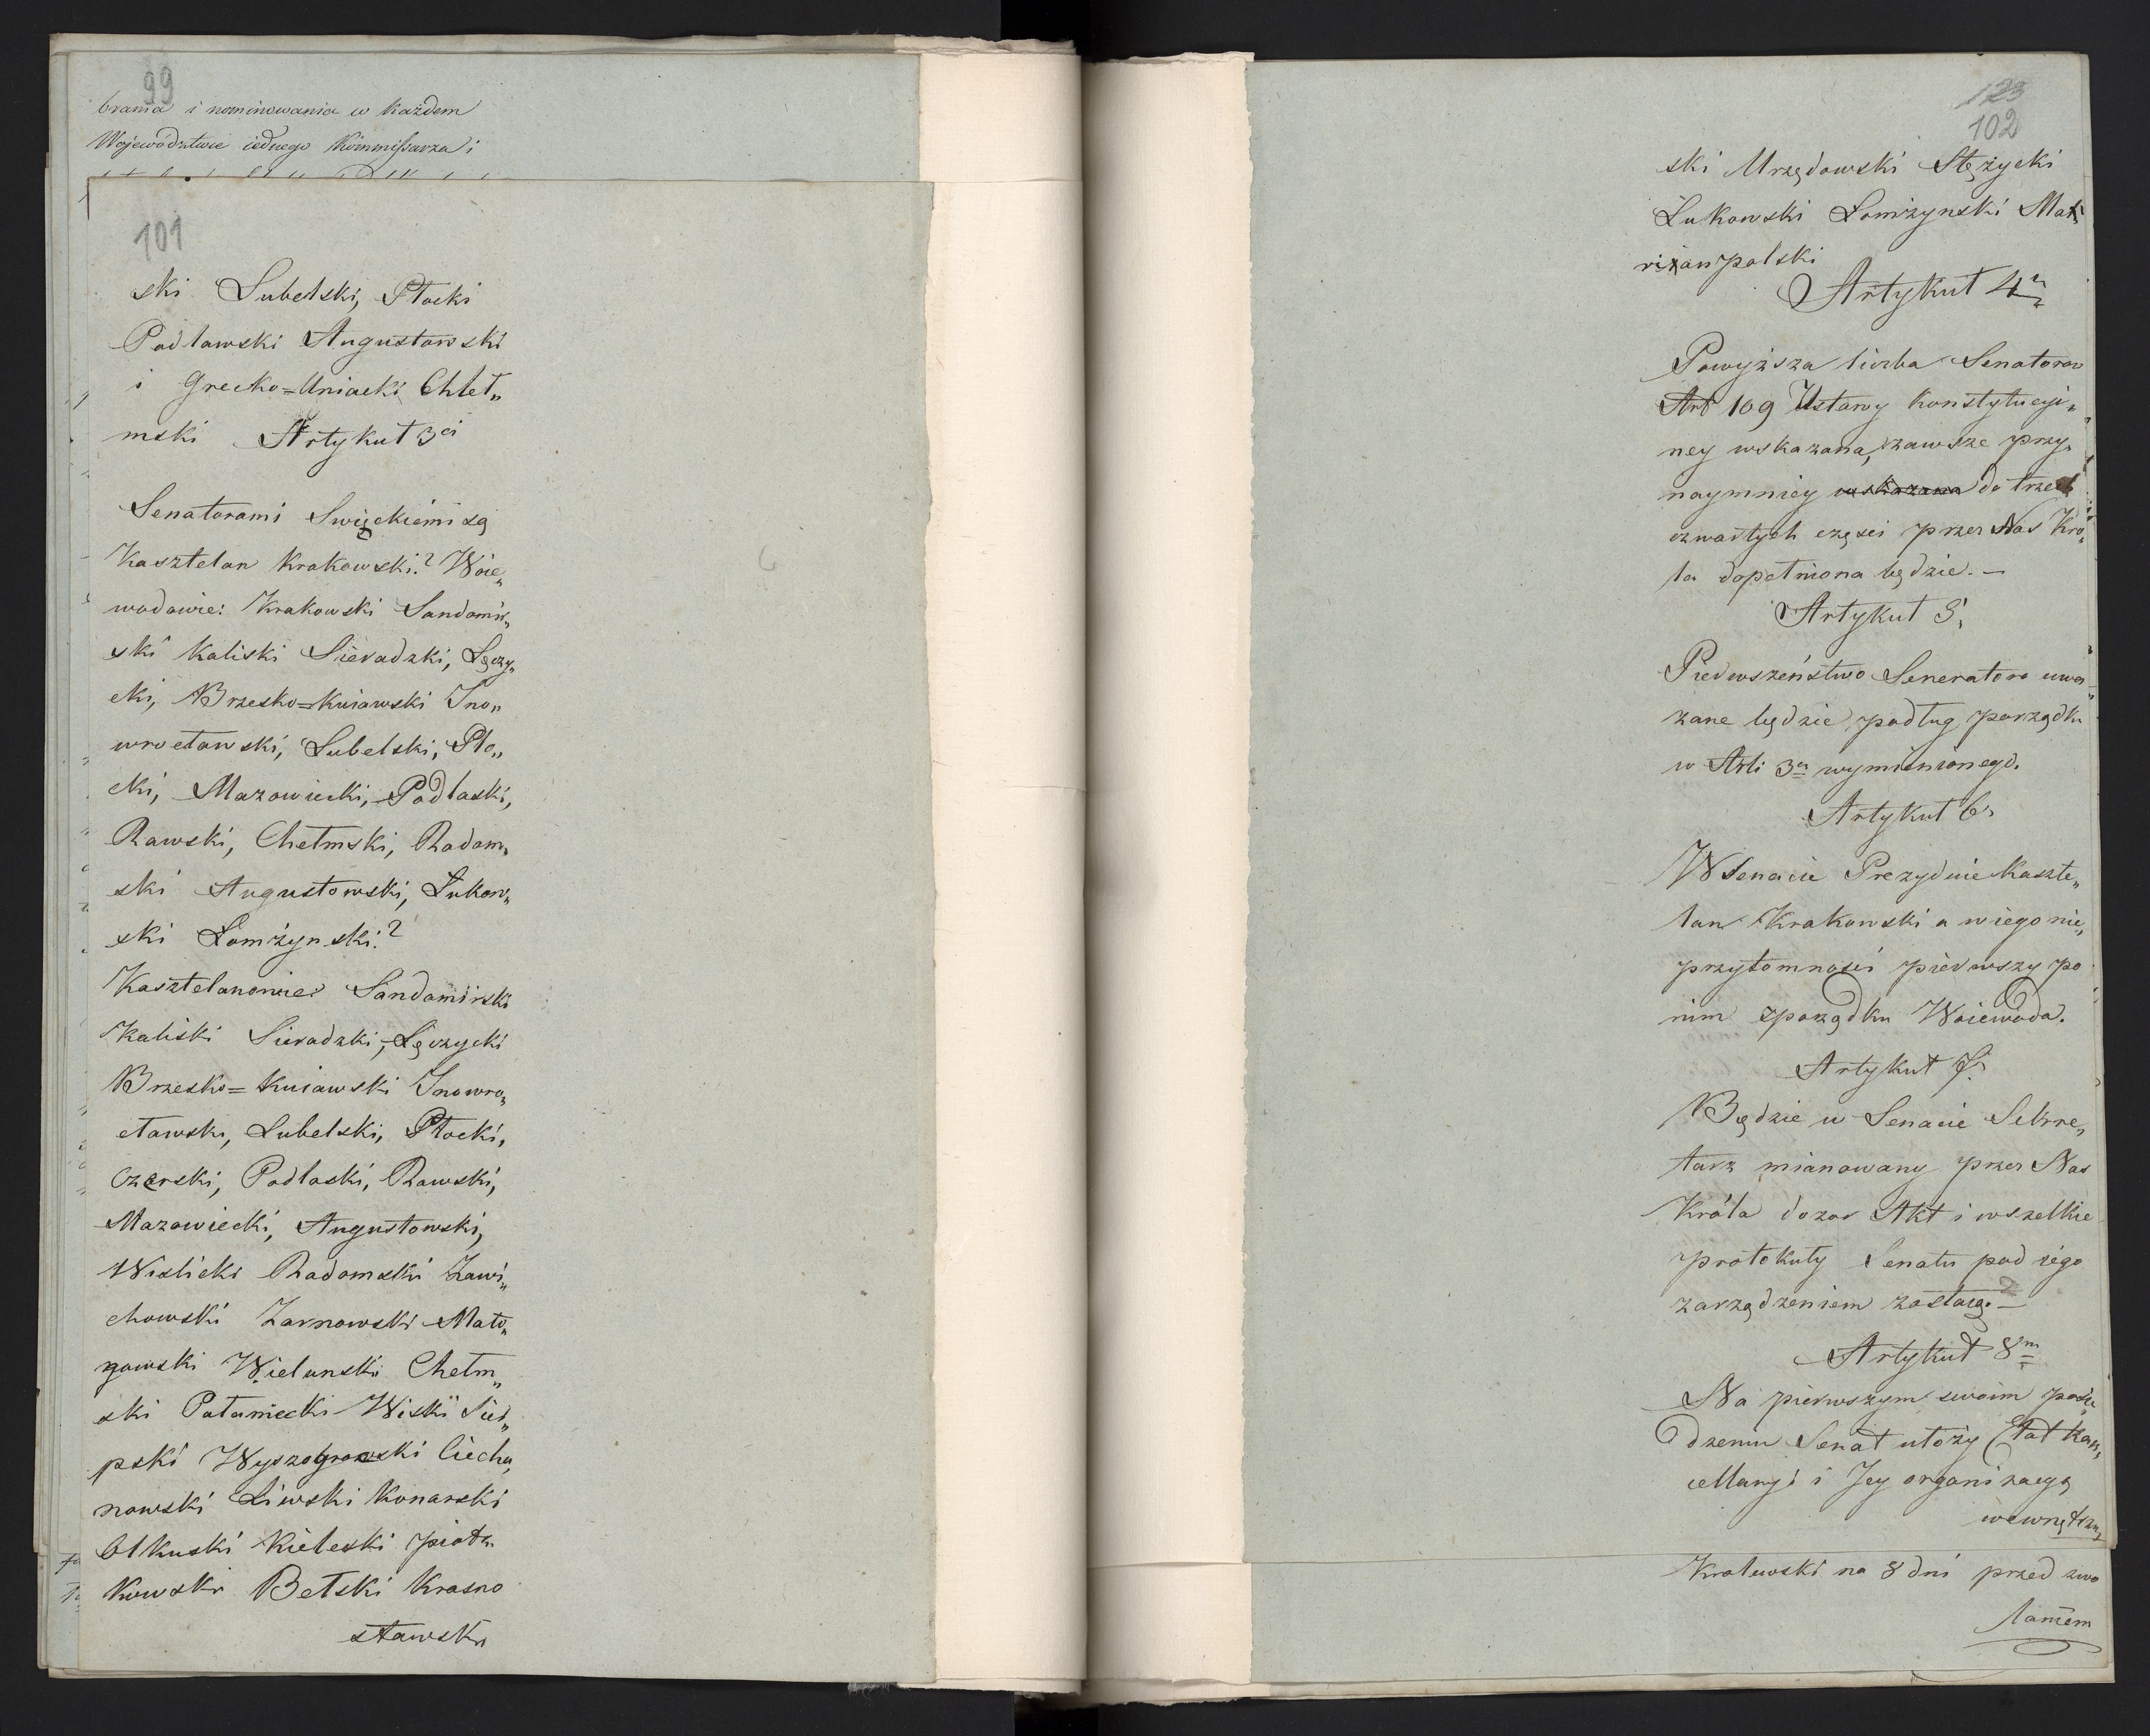 99
brania i nominowania w każdem
Wojewodztwie iednego Kommissarza i
101
ski Lubelski, Płocki
Podlawski Augustowski
i Grecko=Uniacki Chteł„
mski Artykuł 3ci
Senatorami Swieckiemi są
Kasztelan Krakowski? Woie„
wodowie: Krakowski Sandomir„
ski Kaliski Sieradzki, Łęczy„
cki, Brzesko=Kuiawski Ino„
wrocławski, Lubelski, Pło„
cki, Mazowiecki, Podlaski,
Rawski, Chełmski, Radom„
ski Augustowski, Łukow„
ski Łomżynski?
Kasztelanowie: Sandomirski
Kaliski Sieradzki, Łęczycki
Brzesko=Kuiawski Inowro„
cławski, Lubelski, Płocki,
Czerski, Podlaski, Rawski,
Mazowiecki, Augustowski,
Wislicki Radomski Zawi„
chowski Żarnowski Mało„
gowski Wielunski Chełm„
ski Połaniecki Wiski Sier„
pski Wyszogrowski Ciecha„
nowski Liwski Konarski
Olkuski Kieleski Piotr„
kowski Bełski Krasno
stawski
123
102
ski Urzędowski Stężycki
Łukowski Łomżynski Mar„
rianpolski
Artykuł 4„
Powyższa liczba Senatorow
Art 109 Ustawy Konstytucyi„
ney wskazana, zawsze przy„
naymniey wskazana do trzech
czwartych częsci przez Nas Kró„
la dopełniona będzie. —
Artykuł 5.
Pierwszeństwo Seneratoro uwa„
zane będzie podług porządku
w Arti 3m wymienionego.
Artykuł 6.
W Senacie Prezyduie Kaszte„
lan Krakowski a w iego nie„
przytomnosci pierwszy po
nim zporządku Woiewoda.
Artykuł 7.
Będzie w Senacie Sekre„
tarz mianowany przez Nas
Króla dozor Akt i wszelkie
protokuły Senatu pod iego
zarządzeniem zostaią. —
Artykuł 8m
Na pierwszym swoim posie„
dzeniu Senat ułoży Etat Kan„
cellaryi i Jey organizacyą
wewnętrzn„
Krolewski na 8 dni przed zwo
łaniem